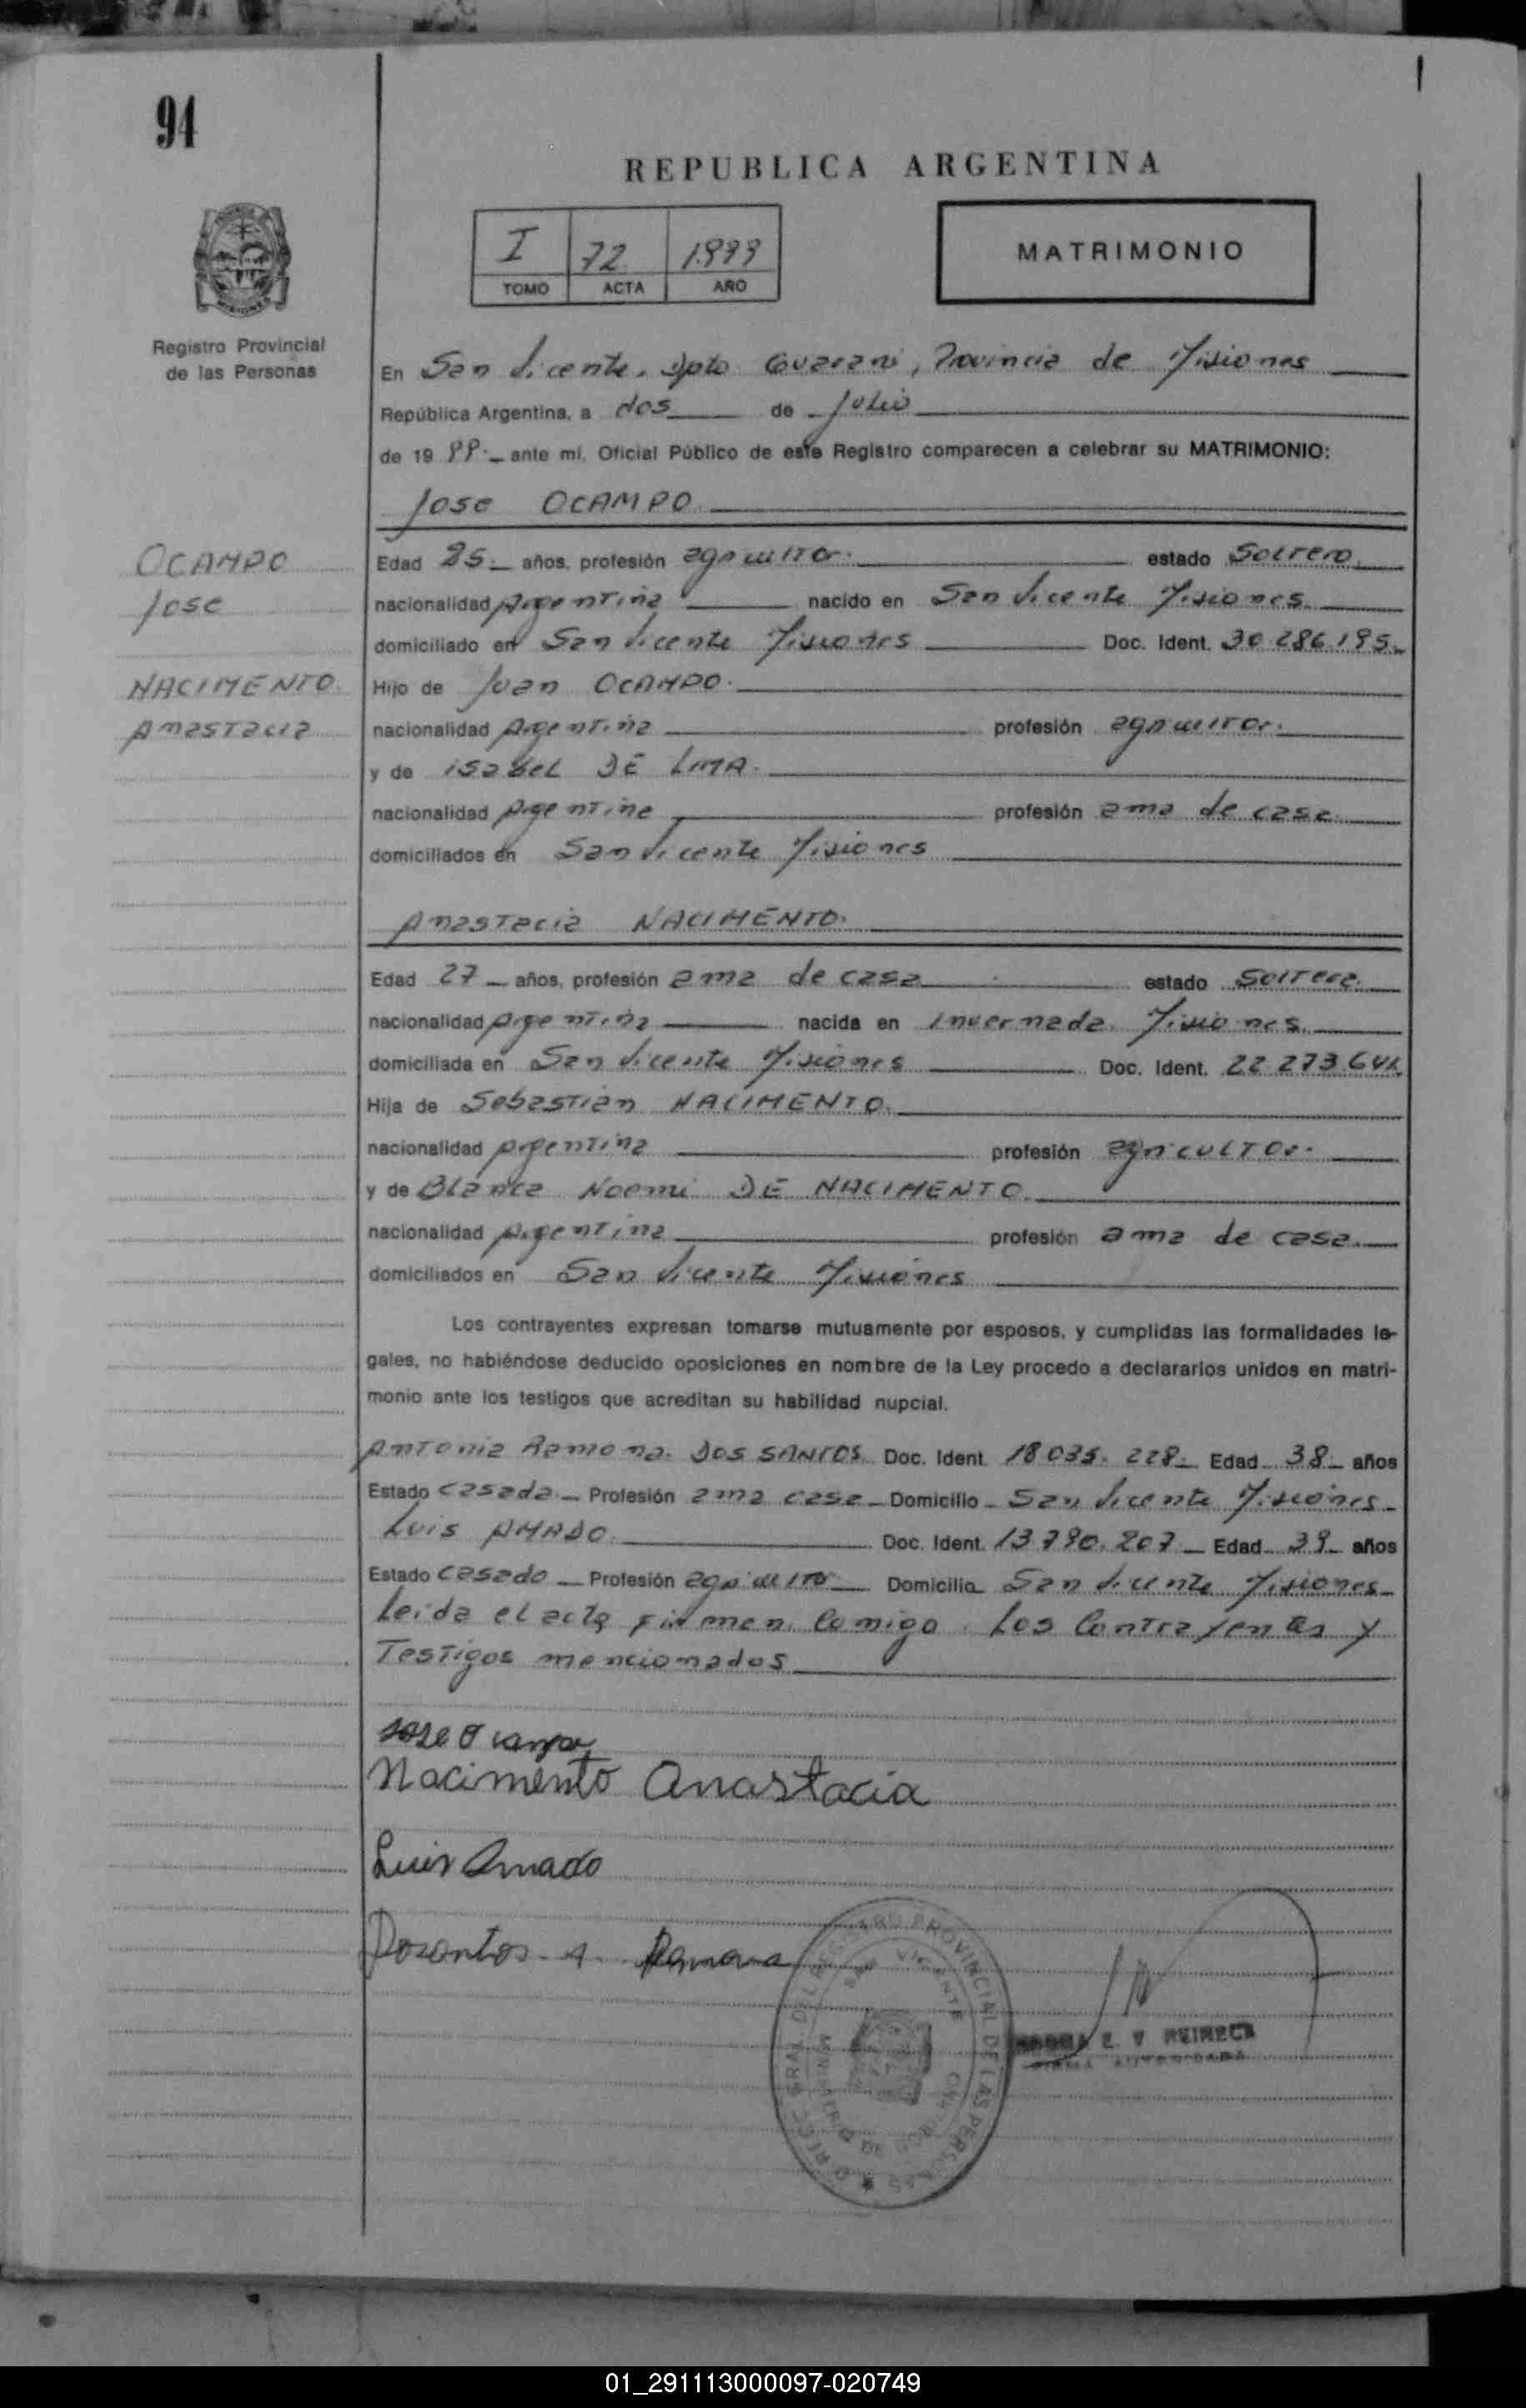 94
REPUBLICA ARGENTINA
I 72 1.999
TOMO ACTA AÑO
MATRIMONIO
Registro Provincial
de las Personas
En San Vicente, Dpto Guarani, Provincia de Misiones
República Argentina, a dos de Julio
de 19 99.- ante mí, Oficial Público de este Registro comparecen a celebrar su MATRIMONIO:
Jose OCAMPO
OCAMPO
Jose
NACIMENTO
Anastacia
Edad 25.- años, profesión agricultor. estado Soltero
nacionalidad Argentina nacido en San Vicente Misiones
domiciliado en San Vicente Misiones Doc. Ident. 30 286.195.-
Hijo de Juan OCAMPO.
nacionalidad Argentina profesión agricultor.
y de isabel DE LIMA.
nacionalidad Argentina profesión ama de casa
domiciliados en San Vicente Misiones
Anastacia NACIMENTO.
Edad 27 - años, profesión ama de casa estado Soltera
nacionalidad Argentina nacida en invernada Misiones
domiciliada en San Vicente Misiones Doc. Ident. 22 273
Hija de Sebastian NACIMENTO
nacionalidad Argentina profesión agricultor.
y de Blanca Noemi DE NACIMENTO
nacionalidad Argentina profesión ama de casa.
domiciliados en San Vicente Misiones
Los contrayentes expresan tomarse mutuamente por esposos, y cumplidas las formalidades le-
gales, no habiéndose deducido oposiciones en nombre de la Ley procedo a declararlos unidos en matri-
monio ante los testigos que acreditan su habilidad nupcial.
Antonia Ramona. DOS SANTOS Doc. Ident. 18 035. 228.- Edad 38 - años
Estado casada.- Profesión ama casa - Domicilio - San Vicente Misiones -
Luis AMADO Doc. Ident. 13 790. 207 - Edad 39 - años
Estado casado - Profesión agricultor Domicilio San Vicente Misiones -
Leida el acta firmen Comigo Los Contrayentes y
Testigos mencionados
Jose Ocampo
Nacimento Anastacia
Luis Amado
Dosantos A. Ramona
SAN VICENTE
E. V. REINECK
FIRMA AUTORIZADA
01_291113000097-020749